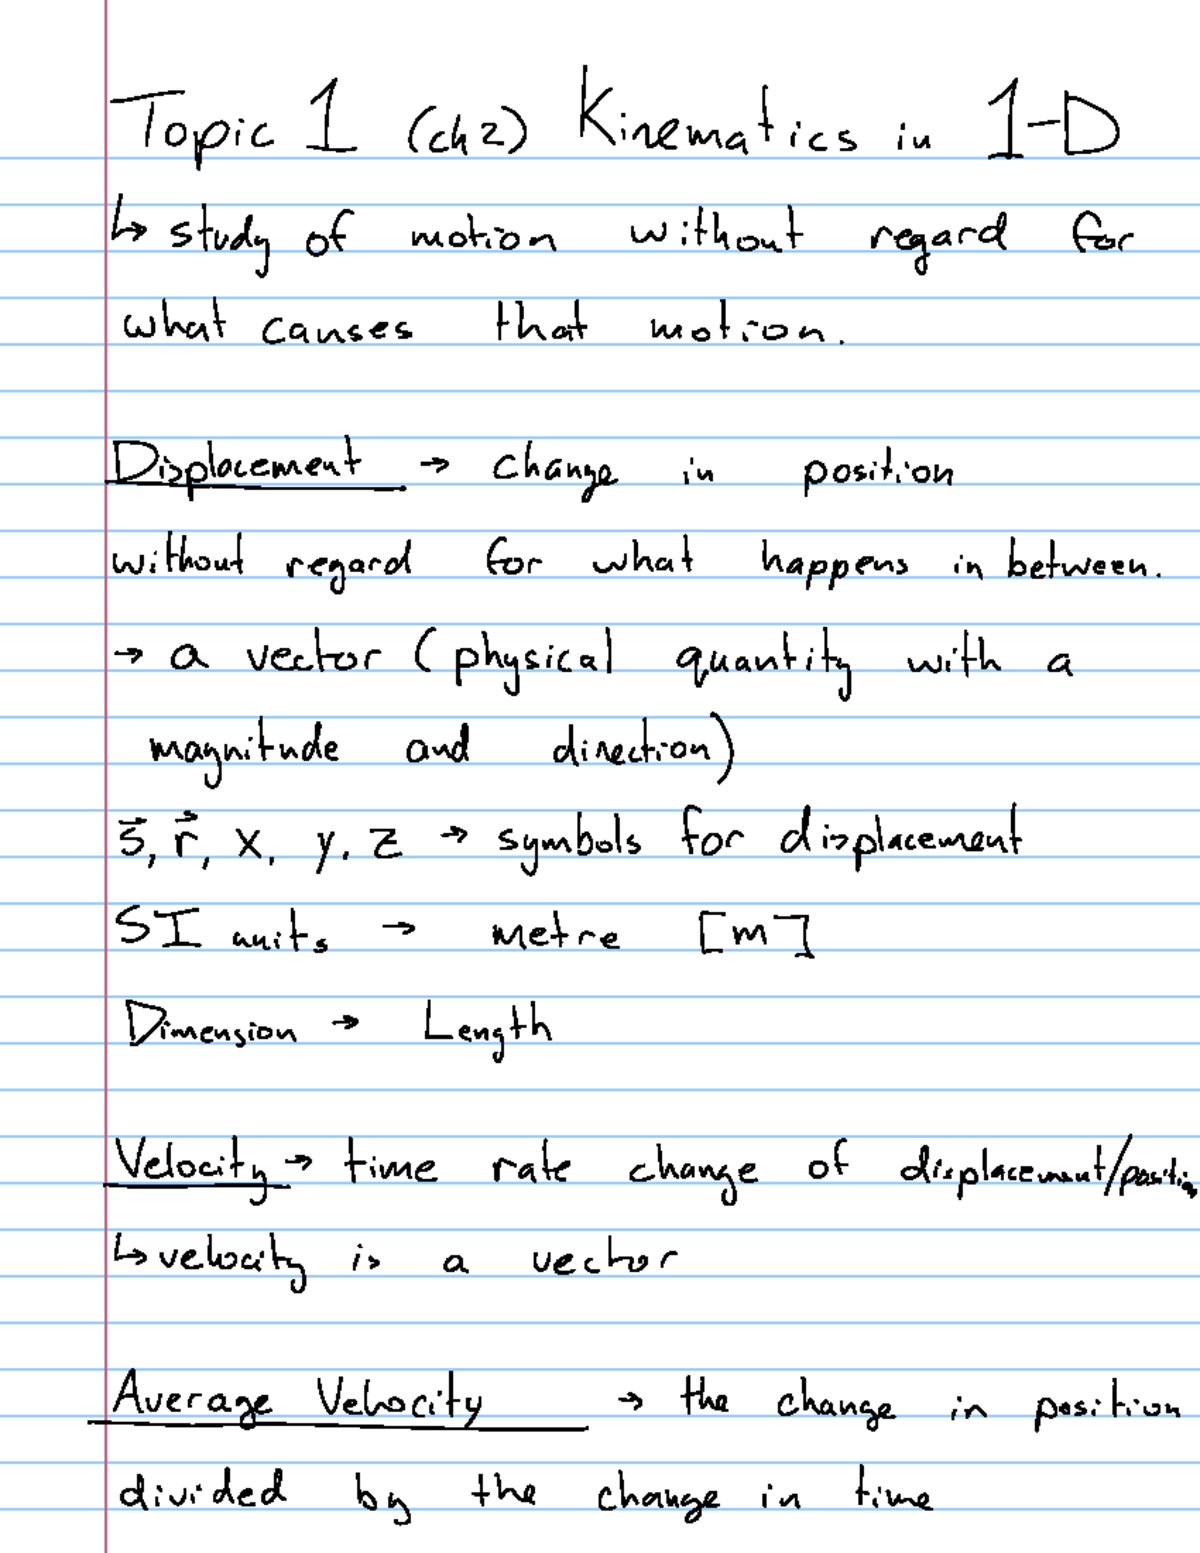 Topic 1 (ch 2) Kinematics in 1-D
↳ study of motion without regard for
what causes that motion.
Displacement → change in position
without regard for what happens in between.
→ a vector (physical quantity with a
magnitude and direction)
s⃗, r⃗, x, y, z → symbols for displacement
SI units → metre [m]
Dimension → Length
Velocity → time rate change of displacement/position
↳ velocity is a vector
Average Velocity → the change in position
divided by the change in time